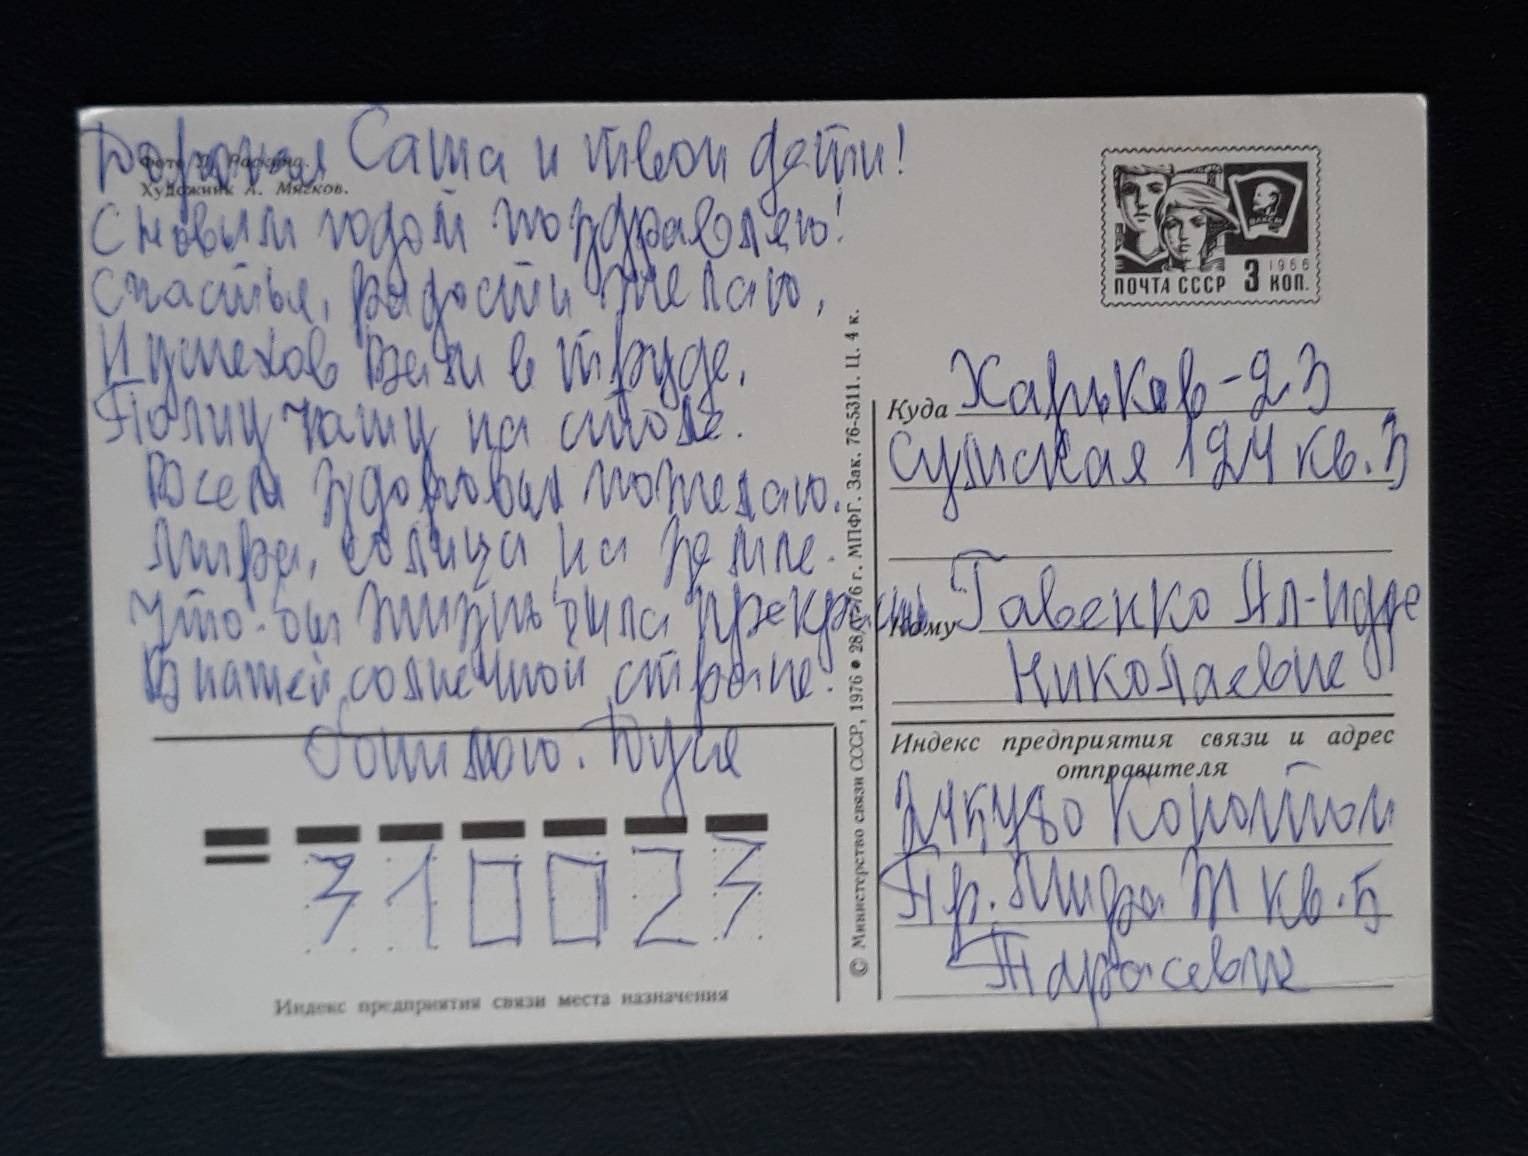 Дорогая Саша и твои дети!
Фото
Художник А. Мягков.
С новым годом поздравляю!
Счастья, радости желаю,
И успехов Вам в труде,
Полну чашу на столе.
Всем здоровья пожелаю.
Мира, солнца на земле.
Что-бы жизнь была прекрасна
В нашей солнечной стране.
Обнимаю. Дуся
310023
Индекс предприятия связи места назначения
© Министерство связи СССР, 1976 ● 28/ 76 г. МПФГ. Зак. 76-5311. Ц. 4 к.
ВЛКСМ
1966
ПОЧТА СССР 3 КОП.
Куда Харьков-23
Сумская 124 кв. 3
Кому Гавенко Ал-ндре
Николаевне
Индекс предприятия связи и адрес
отправителя
Конотоп
Пр. Мира кв. 5